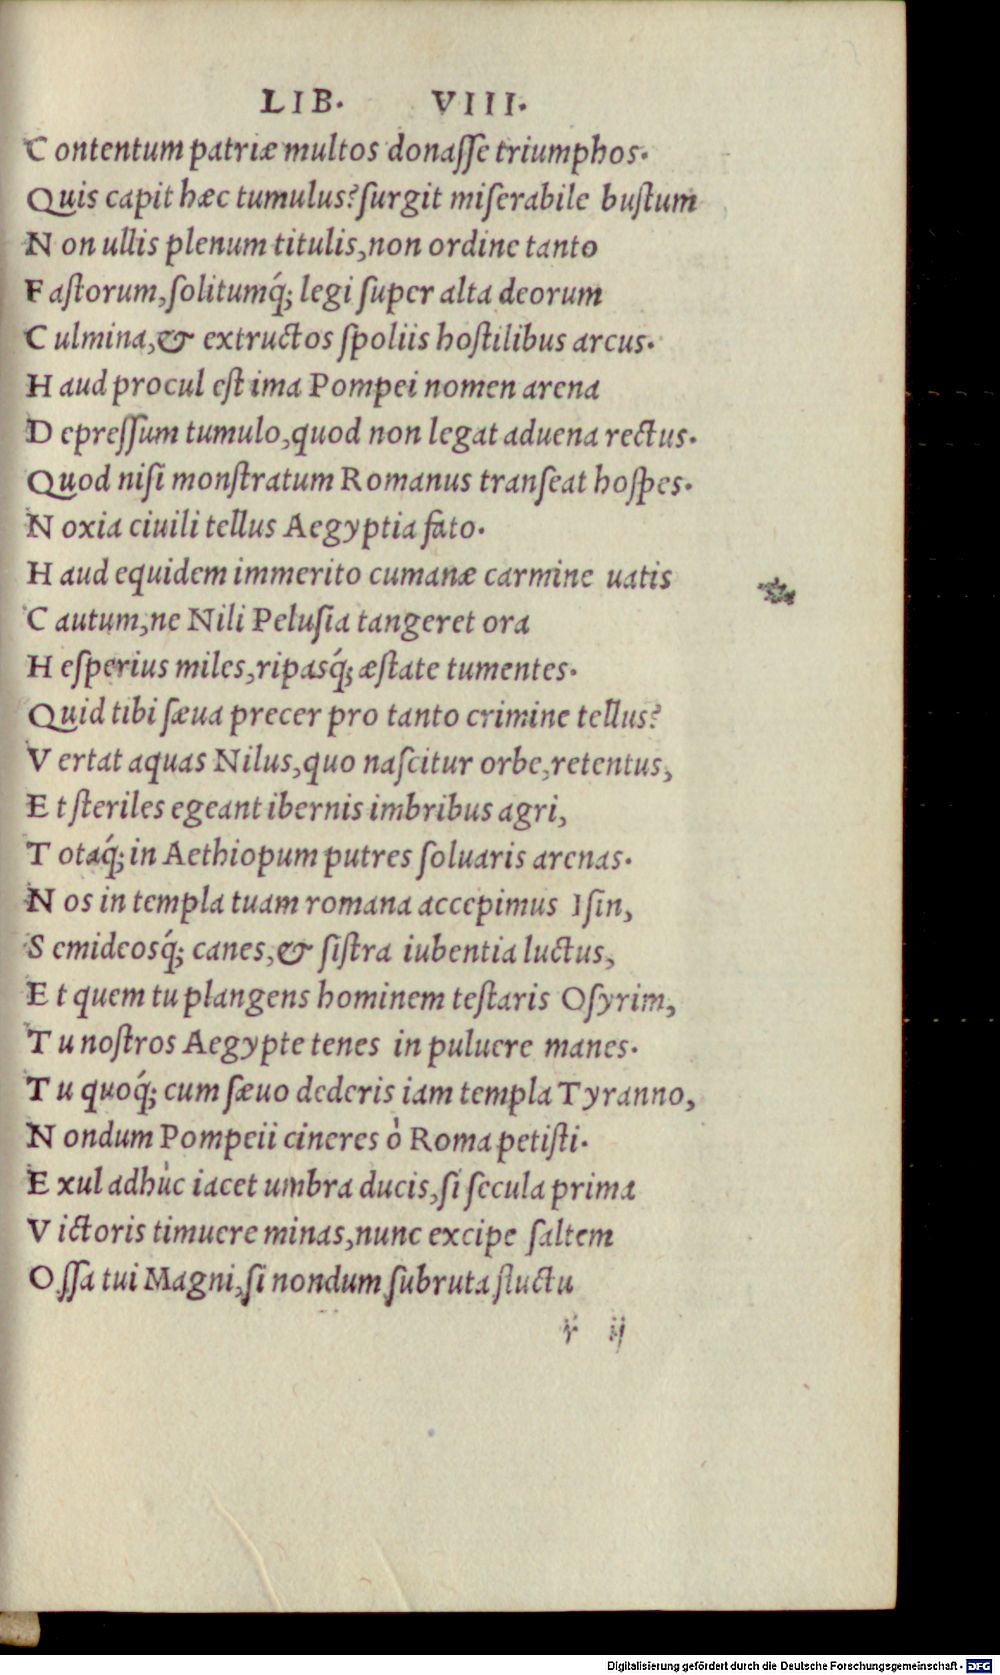 LIB. VIII.
C ontentum patriæ multos donasse triumphos.
Quis capit hæc tumulus? surgit miserabile bustum
N on ullis plenum titulis, non ordine tanto
F astorum, solitumq́; legi super alta deorum
C ulmina, & extructos spoliis hostilibus arcus.
H aud procul est ima Pompei nomen arena
D epressum tumulo, quod non legat aduena rectus.
Quod nisi monstratum Romanus transeat hospes.
N oxia ciuili tellus Aegyptia fato.
H aud equidem immerito cumanæ carmine uatis
C autum, ne Nili Pelusia tangeret ora
H esperius miles, ripasq́; æstate tumentes.
Quid tibi sæua precer pro tanto crimine tellus?
V ertat aquas Nilus, quo nascitur orbe, retentus,
E t steriles egeant ibernis imbribus agri,
T otaq́; in Aethiopum putres soluaris arenas.
N os in templa tuam romana accepimus Isin,
S emideosq́; canes, & sistra iubentia luctus,
E t quem tu plangens hominem testaris Osyrim,
T u nostros Aegypte tenes in puluere manes.
T u quoq́; cum sæuo dederis iam templa Tyranno,
N ondum Pompeii cineres ò Roma petisti.
E xul adhùc iacet umbra ducis, si secula prima
V ictoris timuere minas, nunc excipe saltem
O ssa tui Magni, si nondum subruta fluctu
r ij
Digitalisierung gefördert durch die Deutsche Forschungsgemeinschaft - DFG